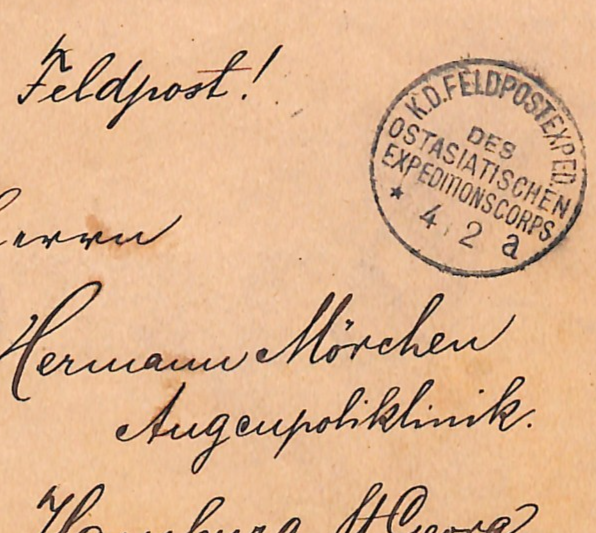 Feldpost!
K.D.FELDPOSTEXPED.
DES
OSTASIATISCHEN
EXPEDITIONSCORPS
* 4 2 a
Herrn
Hermann Mörchen
Augenpoliklinik.
Hamburg St Georg